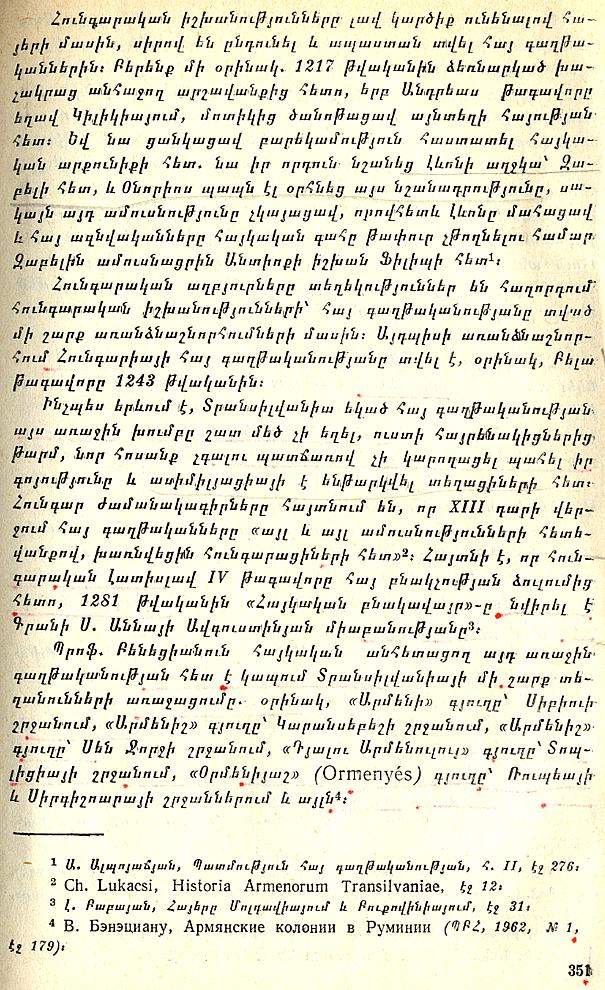 Հունգարական իշխանությունները լավ կարծիք ունենալով հա-
յերի մասին, սիրով են ընդունել և ապաստան տվել հայ գաղթա-
կաններին։ Բերենք մի օրինակ. 1217 թվականին ձեռնարկած խա-
չակրաց անհաջող արշավանքից հետո, երբ Անդրեաս թագավորը
եղավ Կիլիկիայում, մոտիկից ծանոթացավ այնտեղի հայության
հետ։ Եվ նա ցանկացավ բարեկամություն հաստատել հայկա-
կան արքունիքի հետ. նա իր որդուն նշանեց Լևոնի աղջկա՝ Զա-
բելի հետ, և Օնորիոս պապն էլ օրհնեց այս նշանադրությունը, սա-
կայն այդ ամուսնությունը չկայացավ, որովհետև Լևոնը մահացավ
և հայ ազնվականները հայկական գահը թափուր չթողնելու համար
Զաբելին ամուսնացրին Անտիոքի իշխան Ֆիլիպի հետ¹։
Հունգարական աղբյուրները տեղեկություններ են հաղորդում
հունգարական իշխանությունների՝ հայ գաղթականությանը տված
մի շարք առանձնաշնորհումների մասին։ Այդպիսի առանձնաշնոր-
հում Հունգարիայի հայ գաղթականությանը տվել է, օրինակ, Բելա
թագավորը 1243 թվականին։
Ինչպես երևում է, Տրանսիլվանիա եկած հայ գաղթականության
այս առաջին խումբը շատ մեծ չի եղել, ուստի հայրենակիցներից
թարմ, նոր հոսանք չգալու պատճառով չի կարողացել պահել իր
գոյությունը և ասիմիլյացիայի է ենթարկվել տեղացիների հետ։
Հունգար ժամանակագիրները հայտնում են, որ XIII դարի վեր-
ջում հայ գաղթականները «այլ և այլ ամուսնությունների հետե-
վանքով, խառնվեցին հունգարացիների հետ»²։ Հայտնի է, որ հուն-
գարական Լատիսլավ IV թագավորը հայ բնակչության ձուլումից
հետո, 1281 թվականին «Հայկական բնակավայր»-ը նվիրել է
Գրանի Ս. Աննայի Ավգուստինյան միաբանությանը³։
Պրոֆ. Բենեցիանուն հայկական անհետացող այդ առաջին
գաղթականության հետ է կապում Տրանսիլվանիայի մի շարք տե-
ղանունների առաջացումը. օրինակ, «Արմենի» գյուղը՝ Սիբիուի
շրջանում, «Արմենիշ» գյուղը՝ Կարանսեբեշի շրջանում, «Արմենիշ»
գյուղը՝ Սեն Ջորջի շրջանում, «Դյալու Արմենուլույ» գյուղը՝ Տոպ-
լիցիայի շրջանում, «Օրմենիյաշ» (Ormenyés) գյուղը՝ Ռուպեայի
և Սիրգիշոարայի շրջաններում և այլն⁴։
¹ Ա. Ալպոյաճյան, Պատմություն հայ գաղթականության, հ. II, էջ 276։
² Ch. Lukacsi, Historia Armenorum Transilvaniae, էջ 12։
³ Լ. Բաբայան, Հայերը Մոլդավիայում և Բուքովինիայում, էջ 31։
⁴ В. Бэнэциану, Армянские колонии в Руминии (ՊԲՀ, 1962, № 1,
էջ 179)։
351